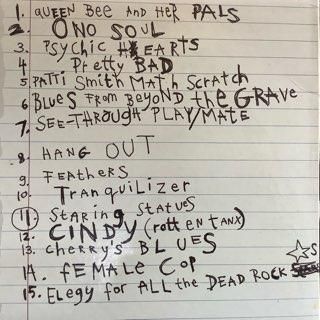 1. QUEEN BEE AND HER PALS
2. ONO SOUL
3. PSYCHIC HEARTS
4 Pretty BAD
5 PATTI Smith MATH Scratch
6 BLUES FROM BEYOND the GRAVE
7. SEE-THROUGH PLAY/MATE
8. HANG OUT
9. FEATHERS
10. Tranquilizer
11. Staring Statues
12. CINDY (rotten tanx)
13. Cherry's BLUES
14. fEMALE Cop
15. Elegy for All the DEAD ROCK ☆s